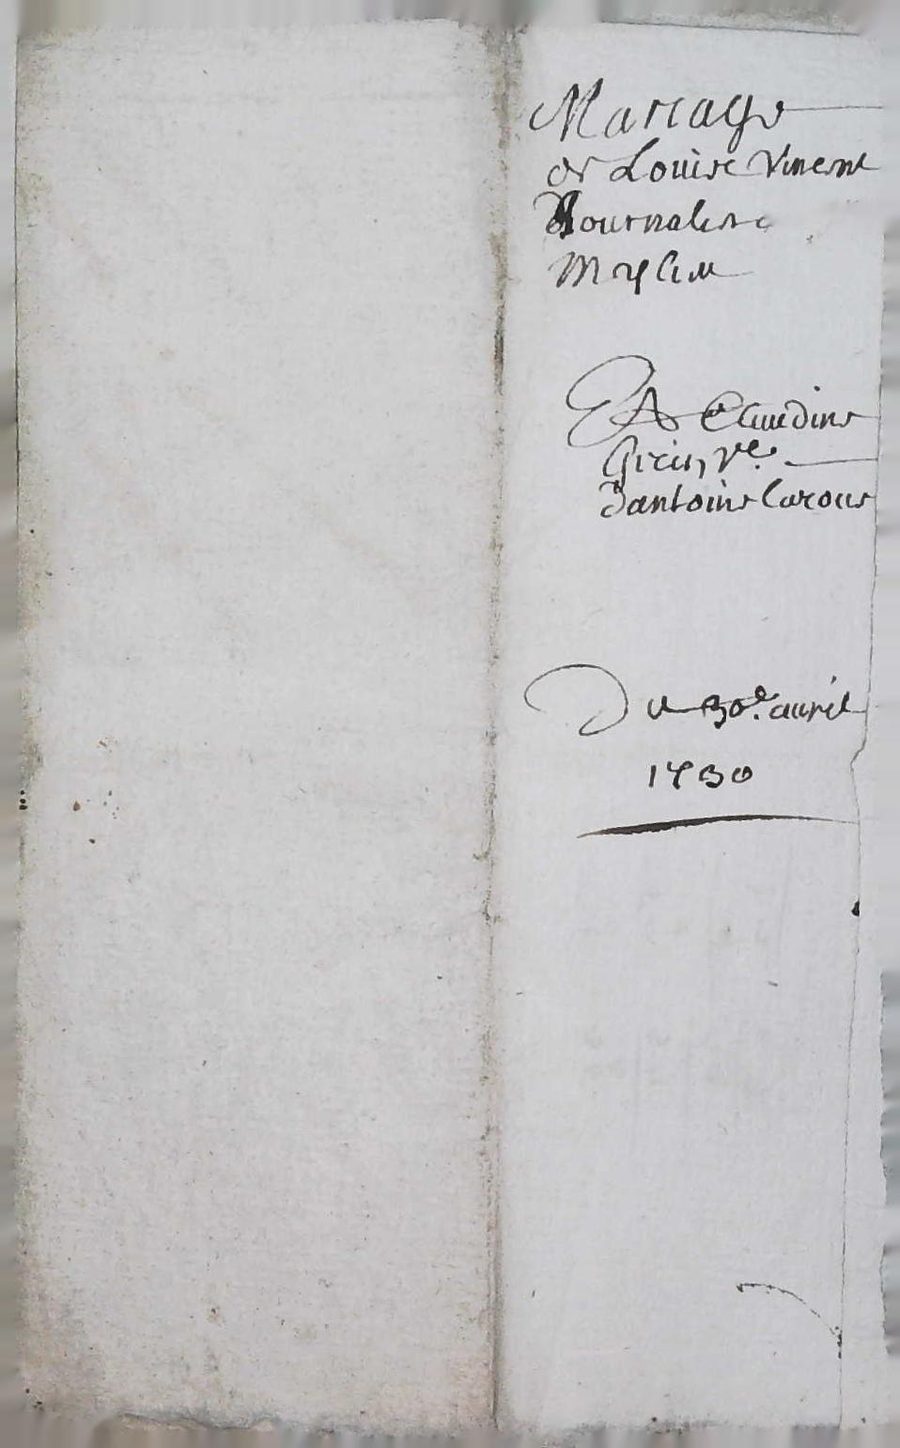 Mariage
de Louise Vincent
Journaliere

Et Claudine
Girin Ve.
d'antoine Carous
Du 30e. auril
1730